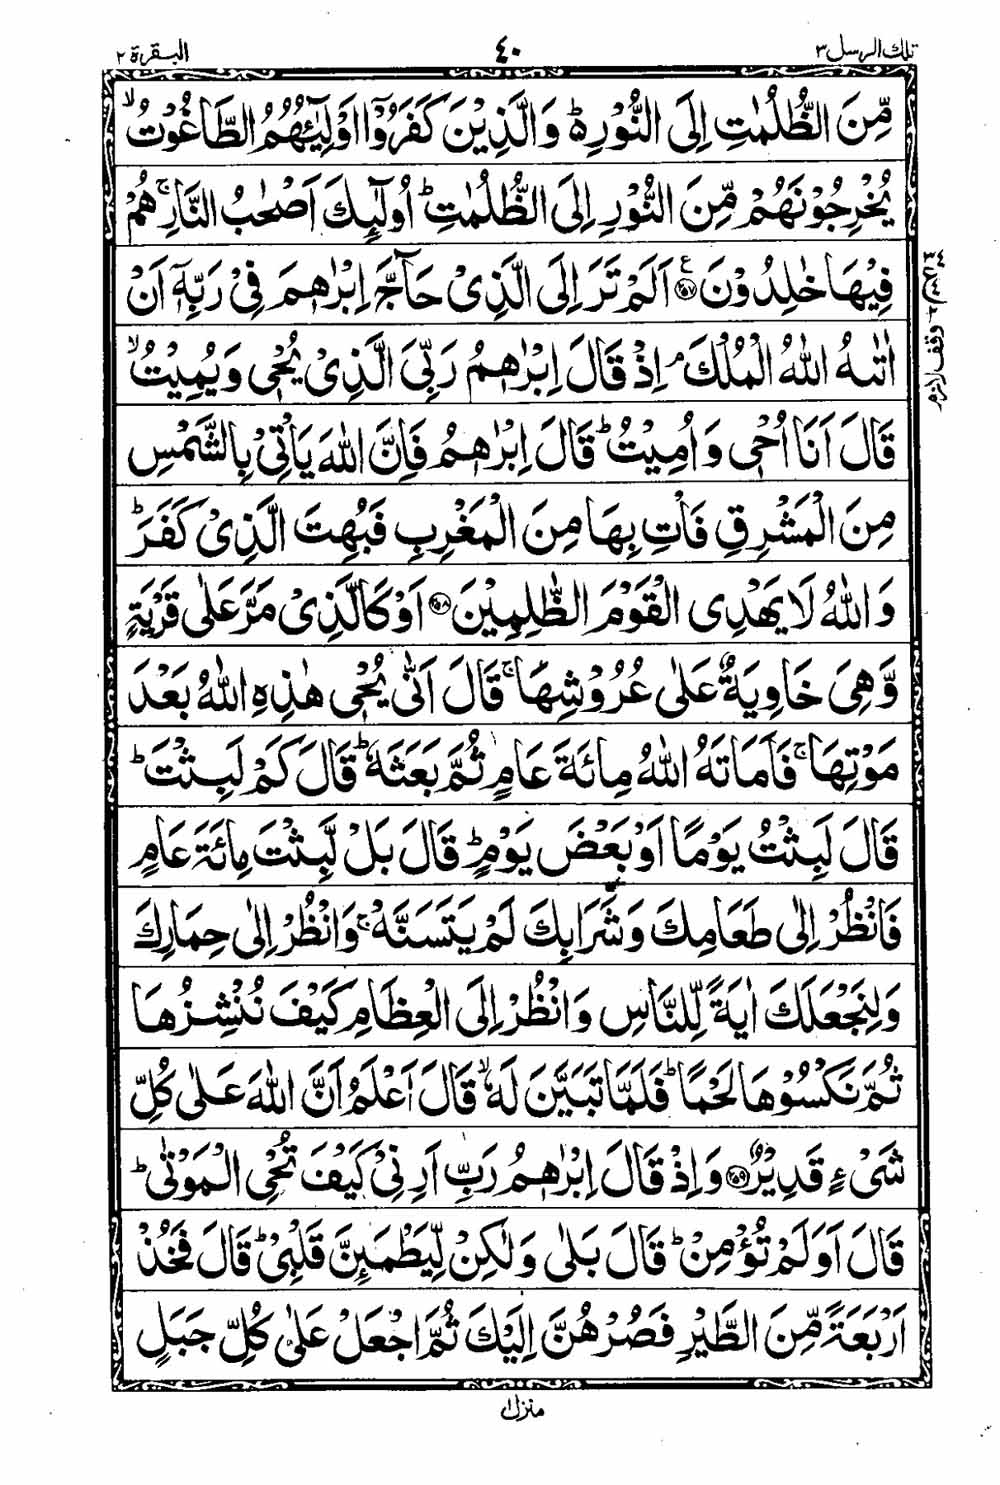 تلك الرسل ٣ ٤٠ البقرة ٢
مِّنَ الظُّلُمٰتِ اِلَى النُّوْرِ۬ؕ وَالَّذِيْنَ كَفَرُوْۤا اَوْلِيٰٓـُٔهُمُ الطَّاغُوْتُۙ
يُخْرِجُوْنَهُمْ مِّنَ النُّوْرِ اِلَى الظُّلُمٰتِؕ اُولٰٓئِكَ اَصْحٰبُ النَّارِۚ هُمْ
فِيْهَا خٰلِدُوْنَ ﴿۲۵۷﴾ ع اَلَمْ تَرَ اِلَى الَّذِىْ حَآجَّ اِبْرٰهٖمَ فِىْ رَبِّهٖۤ اَنْ
اٰتٰىهُ اللّٰهُ الْمُلْكَۘ اِذْ قَالَ اِبْرٰهٖمُ رَبِّىَ الَّذِىْ يُحْىٖ وَيُمِيْتُۙ
قَالَ اَنَا اُحْىٖ وَاُمِيْتُؕ قَالَ اِبْرٰهٖمُ فَاِنَّ اللّٰهَ يَاْتِىْ بِالشَّمْسِ
مِنَ الْمَشْرِقِ فَاْتِ بِهَا مِنَ الْمَغْرِبِ فَبُهِتَ الَّذِىْ كَفَرَؕ
وَاللّٰهُ لَا يَهْدِى الْقَوْمَ الظّٰلِمِيْنَ ﴿۲۵۸﴾ اَوْ كَالَّذِىْ مَرَّ عَلٰى قَرْيَةٍ
وَّهِىَ خَاوِيَةٌ عَلٰى عُرُوْشِهَاۚ قَالَ اَنّٰى يُحْىٖ هٰذِهِ اللّٰهُ بَعْدَ
مَوْتِهَاۚ فَاَمَاتَهُ اللّٰهُ مِائَةَ عَامٍ ثُمَّ بَعَثَهٗؕ قَالَ كَمْ لَبِثْتَؕ
قَالَ لَبِثْتُ يَوْمًا اَوْ بَعْضَ يَوْمٍؕ قَالَ بَلْ لَّبِثْتَ مِائَةَ عَامٍ
فَانْظُرْ اِلٰى طَعَامِكَ وَشَرَابِكَ لَمْ يَتَسَنَّهْۚ وَانْظُرْ اِلٰى حِمَارِكَ
وَلِنَجْعَلَكَ اٰيَةً لِّلنَّاسِ وَانْظُرْ اِلَى الْعِظَامِ كَيْفَ نُنْشِزُهَا
ثُمَّ نَكْسُوْهَا لَحْمًاؕ فَلَمَّا تَبَيَّنَ لَهٗۙ قَالَ اَعْلَمُ اَنَّ اللّٰهَ عَلٰى كُلِّ
شَىْءٍ قَدِيْرٌ ﴿۲۵۹﴾ وَاِذْ قَالَ اِبْرٰهٖمُ رَبِّ اَرِنِىْ كَيْفَ تُحْىِ الْمَوْتٰىؕ
قَالَ اَوَلَمْ تُؤْمِنْؕ قَالَ بَلٰى وَلٰكِنْ لِّيَطْمَئِنَّ قَلْبِىْؕ قَالَ فَخُذْ
اَرْبَعَةً مِّنَ الطَّيْرِ فَصُرْهُنَّ اِلَيْكَ ثُمَّ اجْعَلْ عَلٰى كُلِّ جَبَلٍ
وقف لازم
منزل